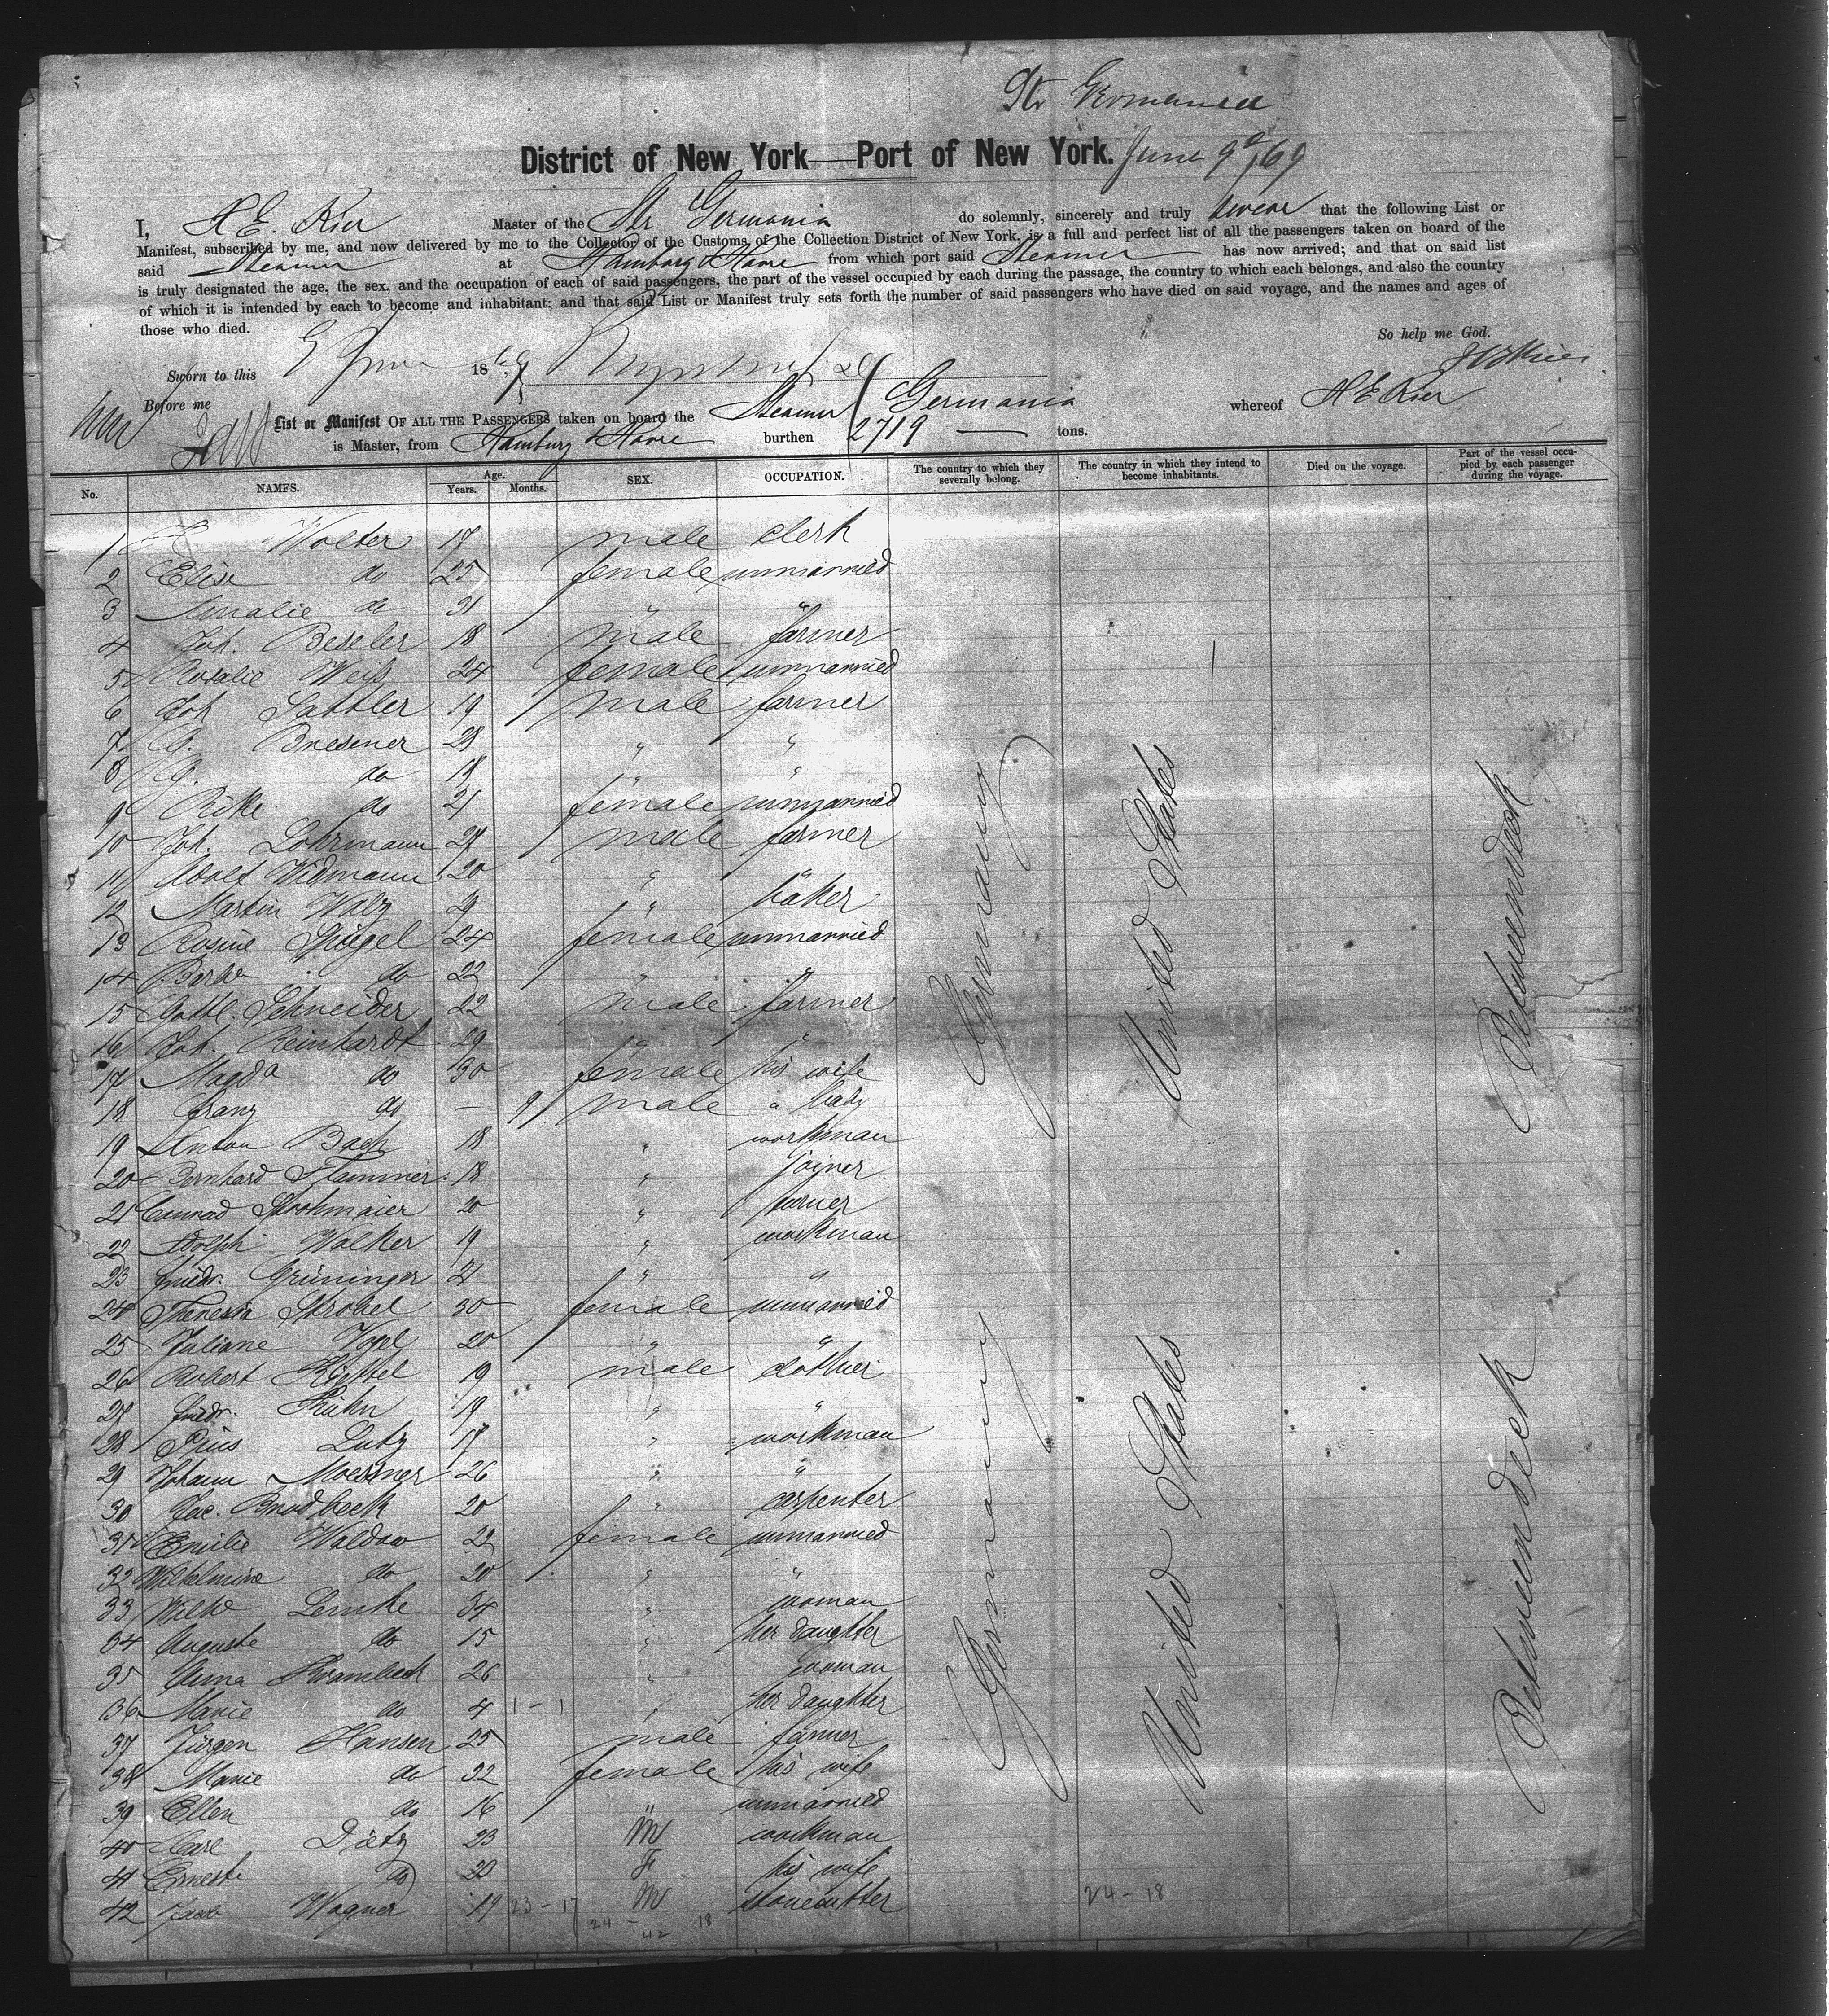 Str Germania
District of New York—Port of New York. June 9th/69
I, H E. Kier Master of the Str Germania do solemnly, sincerely and truly swear that the following List or
Manifest, subscribed by me, and now delivered by me to the Collector of the Customs of the Collection District of New York, is a full and perfect list of all the passengers taken on board of the
said Steamer at Hamburg & Havre from which port said Steamer has now arrived; and that on said list
is truly designated the age, the sex, and the occupation of each of said passengers, the part of the vessel occupied by each during the passage, the country to which each belongs, and also the country
of which it is intended by each to become and inhabitant; and that said List or Manifest truly sets forth the number of said passengers who have died on said voyage, and the names and ages of
those who died.
So help me God.
Sworn to this 9 June 1869
H E Kier
Before me
List or Manifest OF ALL THE PASSENGERS taken on board the Steamer Germania whereof H E Kier
is Master, from Hamburg & Havre burthen 2719 — tons.
No. NAMES. Age. Years. Months. SEX. OCCUPATION. The country to which they severally belong. The country in which they intend to become inhabitants. Died on the voyage. Part of the vessel occupied by each passenger during the voyage.
1 Wolter 17 male clerk
2 Elise do 25 female unmarried
3 Amalie do 31 " "
4 Joh. Beseler 18 male farmer
5 Rosalie Weiß 24 female unmarried
6 Joh Sattler 19 male farmer
7 G. Bresener 28 " "
8 G. do 18 " "
9 Rike do 21 female unmarried
10 Joh. Lohrmann 29 male farmer
11 Adolf Widmann 20 " "
12 Martin Walz 21 " baker
13 Rosine Spiegel 24 female unmarried
14 Barba do 22 " "
15 Gottl. Schneider 22 male farmer
16 Joh. Reinhardt 29 " "
17 Magda do 30 female his wife
18 Franz do — 9 male " baby
19 Anton Bach 18 " workman
20 Bernhard Flammer 18 " joiner
21 Conrad Strohmaier 20 " turner
22 Adolph Walker 19 " workman
23 Friedr. Grüninger 21 " "
24 Theresia Strobel 30 female unmarried
25 Juliane Vogel 20 " "
26 Robert 19 male clothier
27 Friedr. Kuhn 19 " "
28 Pius Lutz 17 " workman
29 Johann Moessner 26 " "
30 Jac. Brodbeck 20 " carpenter
31 Emilie Waldow 22 female unmarried
32 Wilhelmine do 20 " "
33 Wilhe Lemke 34 " woman
34 Auguste do 15 " her daughter
35 Anna Krambeck 26 " woman
36 Marie do 4 " her daughter
37 Jürgen Hansen 25 male farmer
38 Marie do 32 female his wife
39 Ellen do 16 " unmarried
40 Carl Dietz 23 M workman
41 Ernest do 20 F his wife
42 Jacob Wagner 19 23-17 M stonecutter
24-18
24 - 18
42
Germany
United States
Betweendeck
Germany
United States
Betweendeck